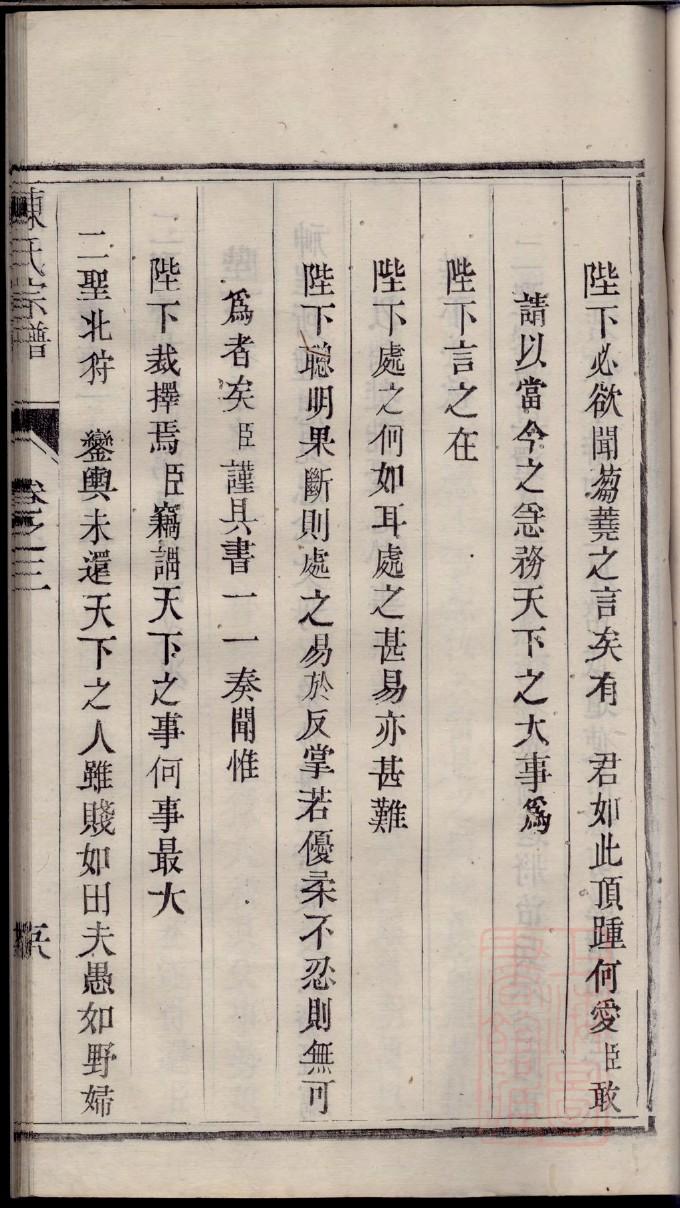 陛下必欲聞芻蕘之言矣有　君如此頂踵何愛臣敢
請以當今之急務天下之大事爲
陛下言之在
陛下處之何如耳處之甚易亦甚難
陛下聰明果斷則處之易於反掌若優柔不忍則無可
爲者矣臣謹具書一一奏聞惟
陛下裁擇焉臣竊謂天下之事何事最大
二聖北狩　鑾輿未還天下之人雖賤如田夫愚如野婦
陳氏宗譜　卷之三